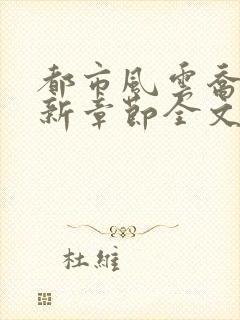 都市風雲喬
新章節全文
杜維